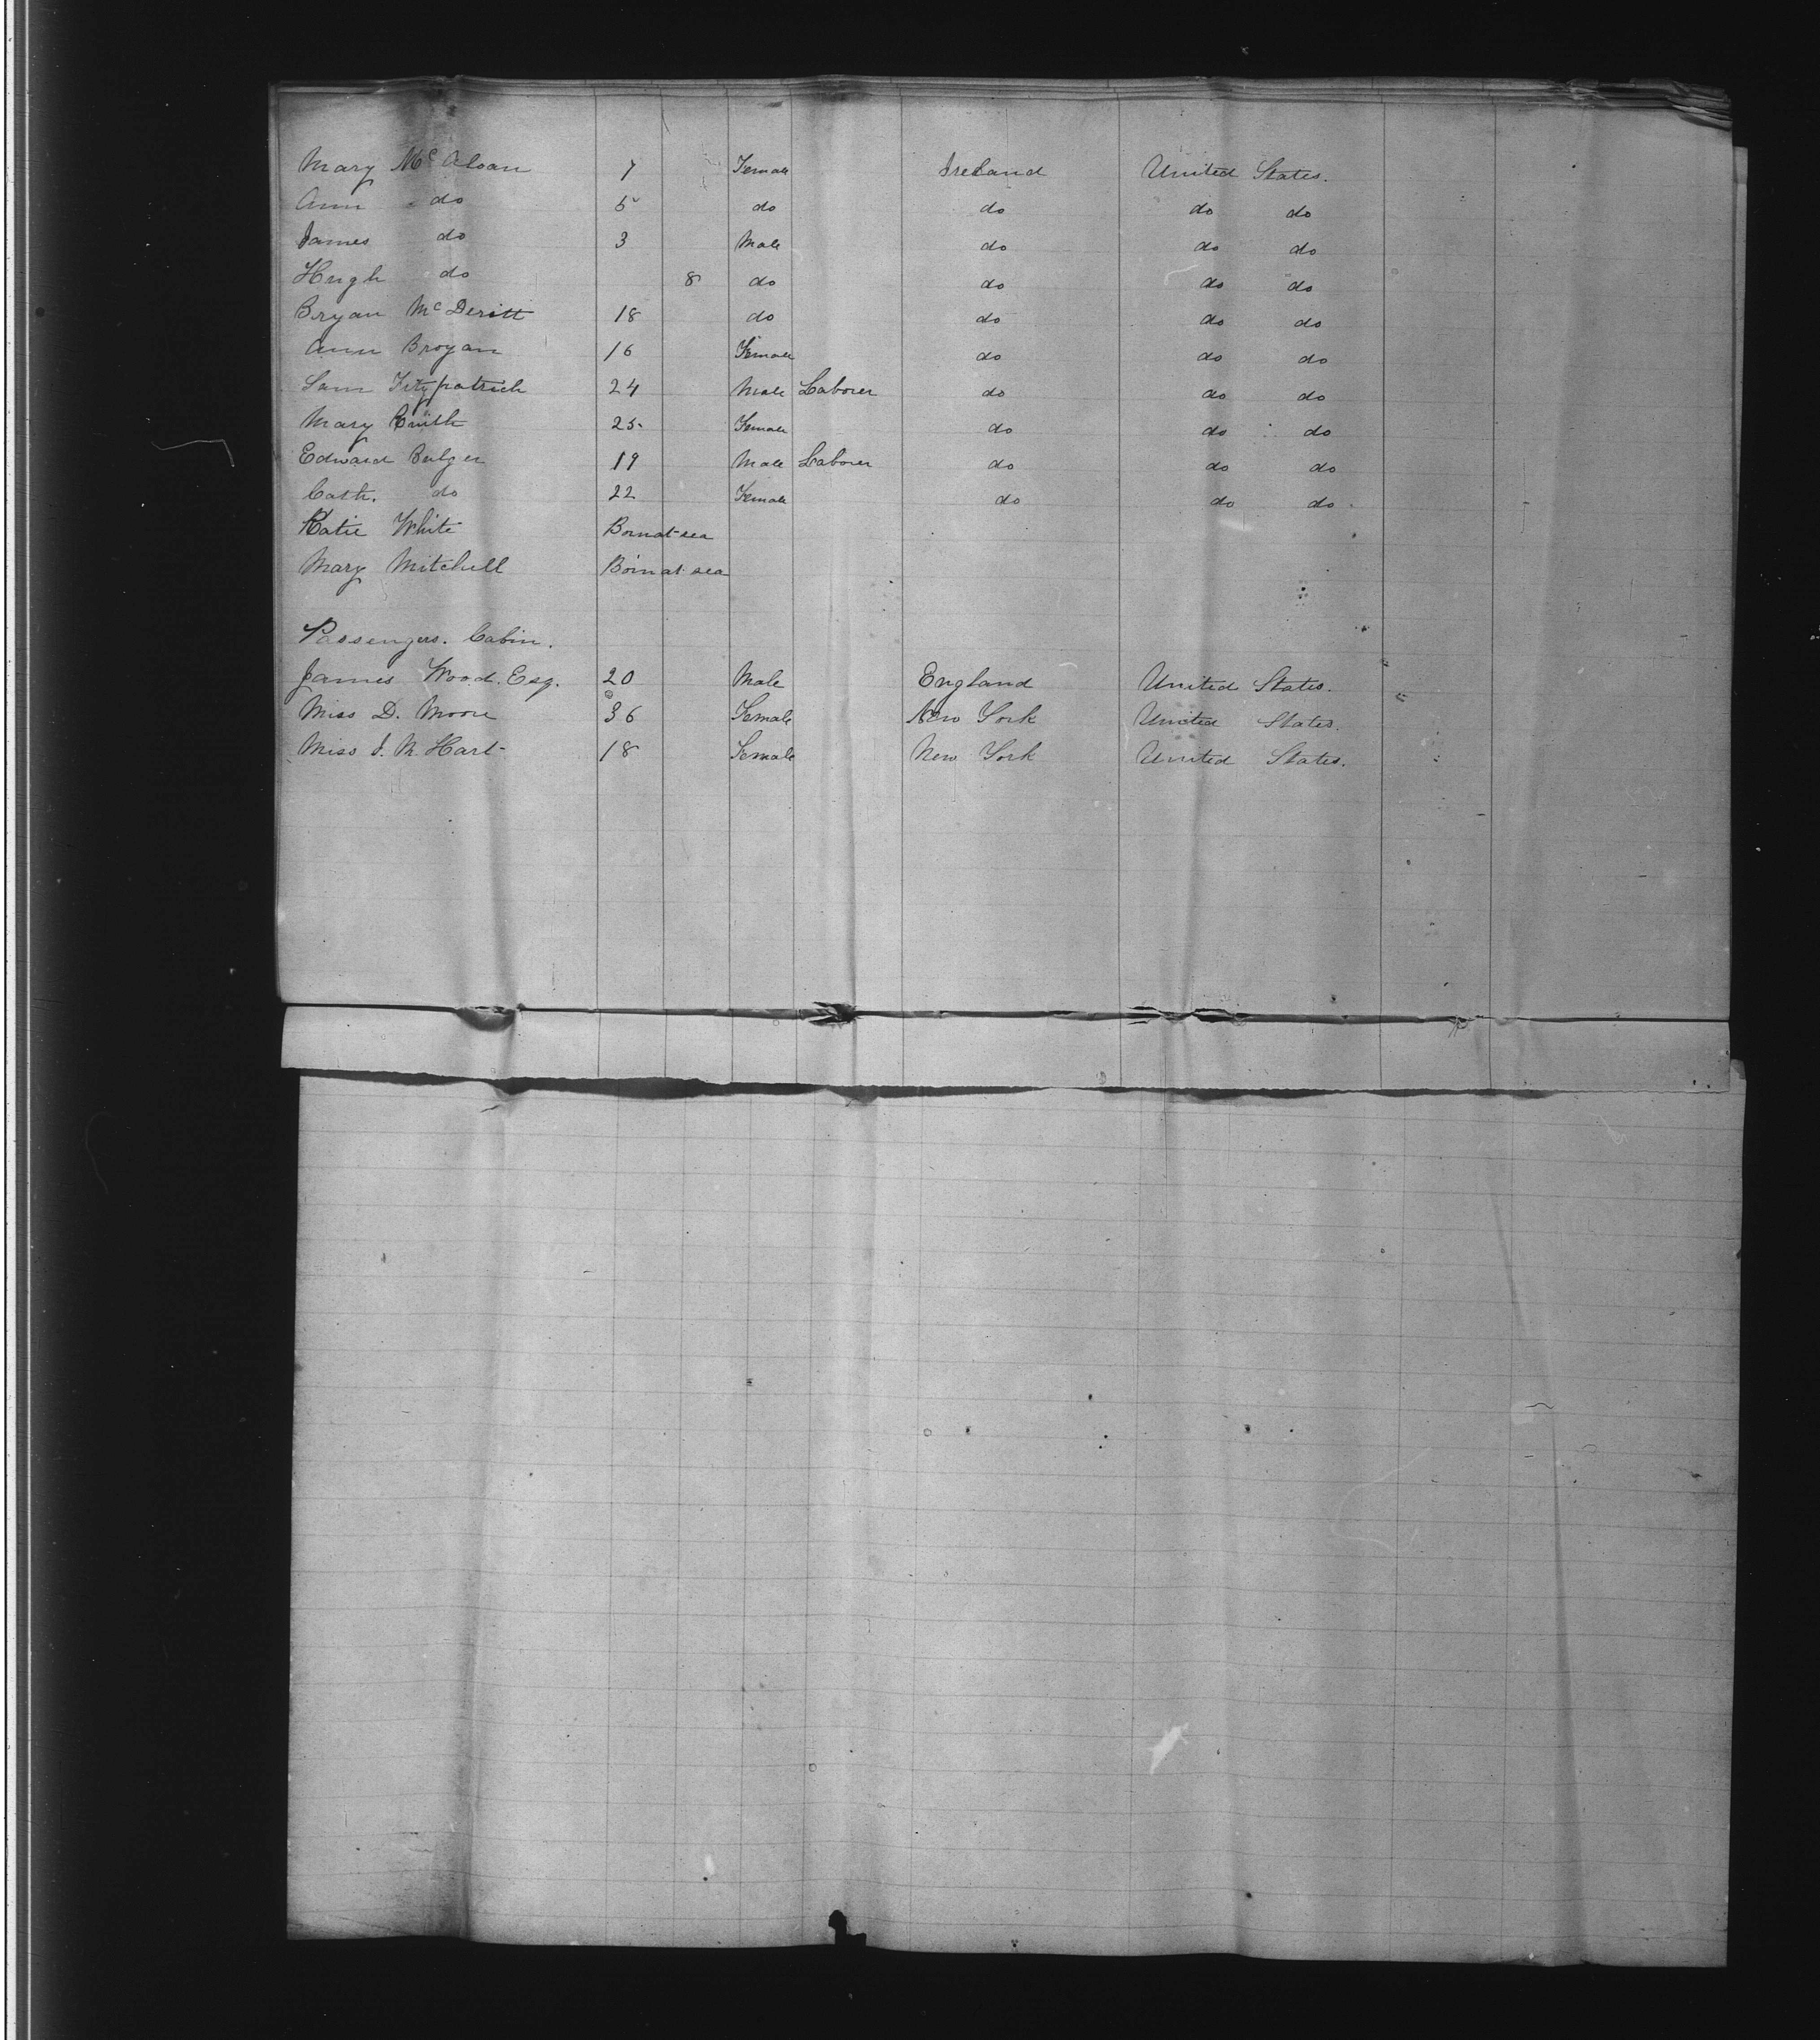 Mary McAloan 7 Female Ireland United States.
Ann do 5 do do do do
James do 3 Male do do do
Hugh do 8 do do do do
Bryan McDeritt 18 do do do do
Ann Brogan 16 Female do do do
Sam Fitzpatrick 24 Male Laborer do do do
Mary 25 Female do do do
Edward Bulger 19 Male Laborer do do do
Cath. do 22 Female do do do
Katie White Born at sea
Mary Mitchell Born at sea
Passengers. Cabin.
James Wood. Esq. 20 Male England United States.
Miss D. Moore 36 Female New York United States.
Miss J. M. Hart 18 Female New York United States.